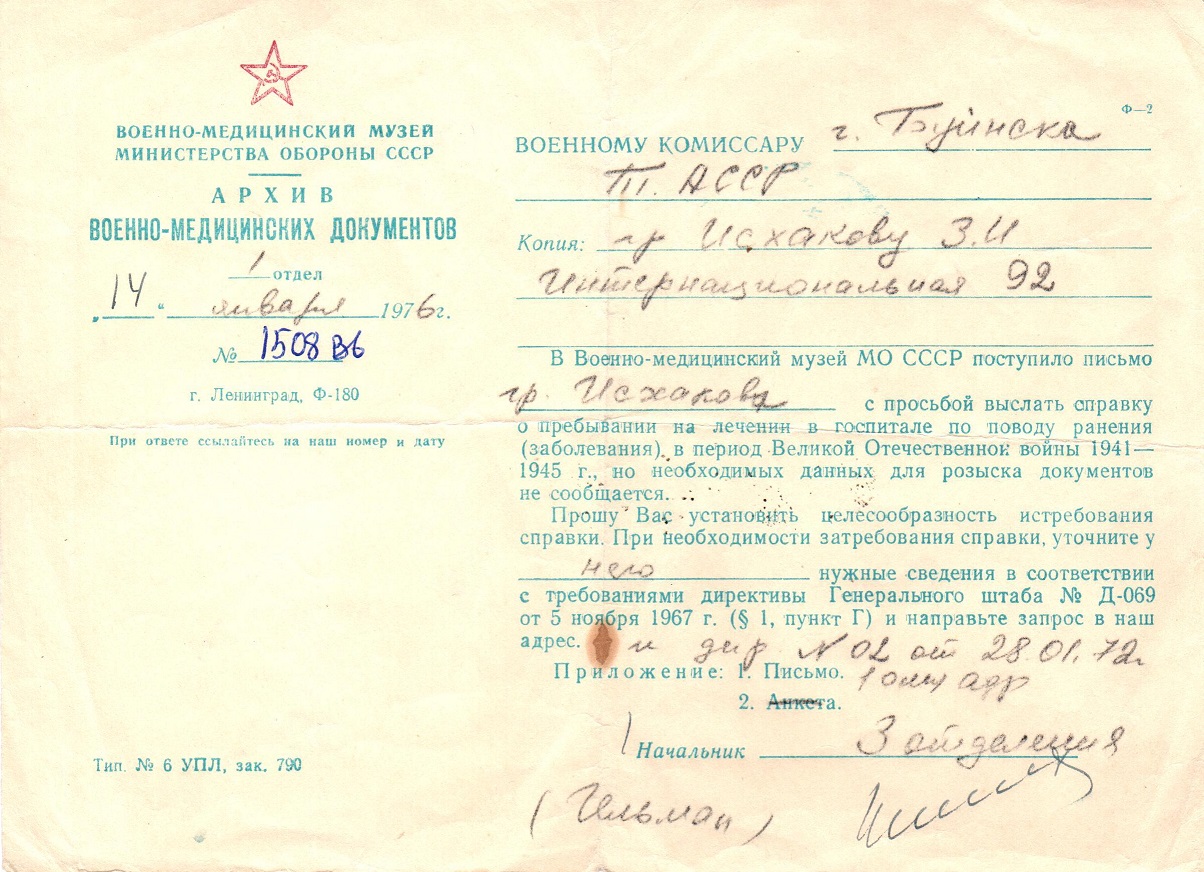 ВОЕННО-МЕДИЦИНСКИЙ МУЗЕЙ
МИНИСТЕРСТВА ОБОРОНЫ СССР
АРХИВ
ВОЕННО-МЕДИЦИНСКИХ ДОКУМЕНТОВ
1 отдел
„14“ января 1976 г.
№ 1508 В6
г. Ленинград, Ф-180
При ответе ссылайтесь на наш номер и дату
Тип. № 6 УПЛ, зак. 790
Ф—2
ВОЕННОМУ КОМИССАРУ г. Буинска
Т. АССР
Копия: гр Исхакову З.И
Интернациональная 92
В Военно-медицинский музей МО СССР поступило письмо
гр. Исхакова с просьбой выслать справку
о пребывании на лечении в госпитале по поводу ранения
(заболевания), в период Великой Отечественной войны 1941—
1945 г., но необходимых данных для розыска документов
не сообщается.
Прошу Вас установить целесообразность истребования
справки. При необходимости затребования справки, уточните у
него нужные сведения в соответствии
с требованиями директивы Генерального штаба № Д-069
от 5 ноября 1967 г. (§ 1, пункт Г) и направьте запрос в наш
адрес. и дир N 02 от 28.01.72г
Приложение: 1. Письмо. 1 адр
2. Анкета.
Начальник 3 отделения
(Гельман)